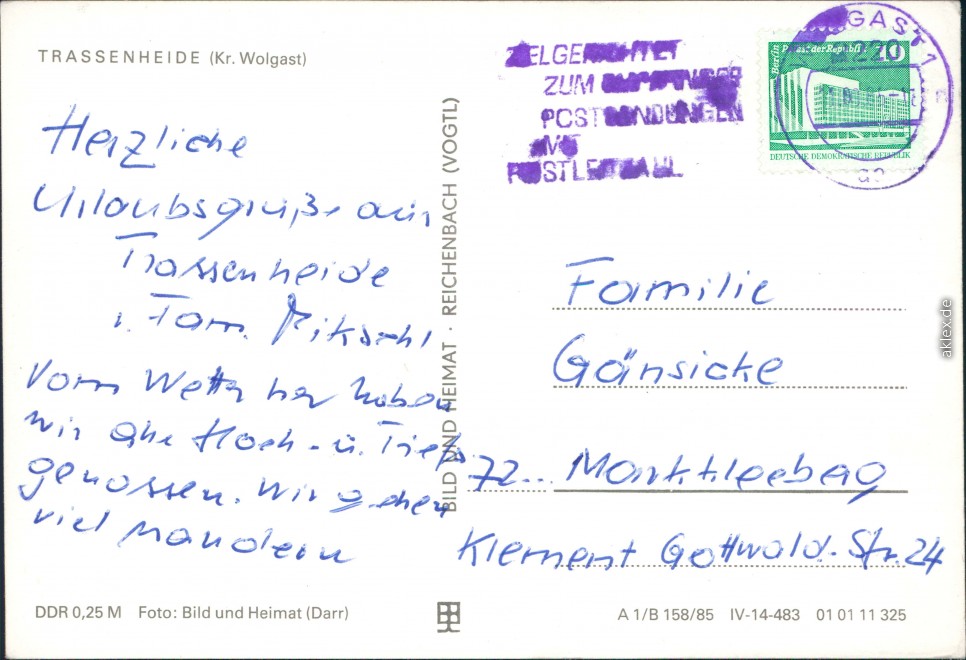 TRASSENHEIDE (Kr. Wolgast)
Herzliche
Urlaubsgrüße aus
Trassenheide
Fam.
Vom Wetter her haben
wir alle Hoch- u. Tiefs
genossen. Wir gehen
viel wandern
DDR 0,25 M Foto: Bild und Heimat (Darr)
BILD UND HEIMAT · REICHENBACH (VOGTL)
ZIELGERICHTET
ZUM EMPFÄNGER
POSTSENDUNGEN
MIT
POSTLEITZAHL
Berlin Palast der Republik 10
DEUTSCHE DEMOKRATISCHE REPUBLIK
WOLGAST 1
2220
Familie
Gänsicke
72... Markkleeberg
Klement Gottwald-Str. 24
A 1/B 158/85 IV-14-483 01 01 11 325
aklex.de